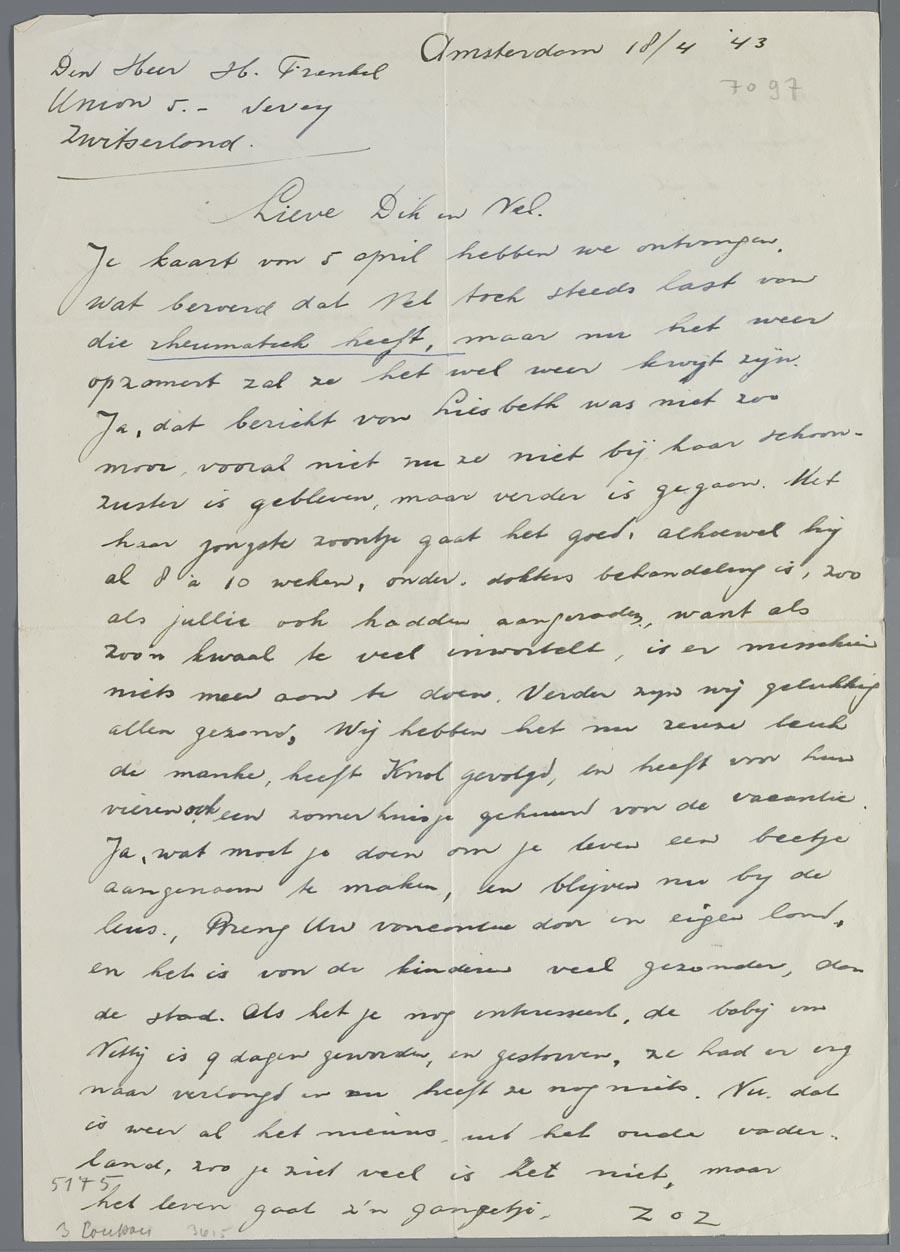 Amsterdam 18/4 '43
7097
Den Heer H. Frenkel
Union 5. - Vevey
Zwitserland.
Lieve Dik en Nel.
Je kaart van 5 april hebben we ontvangen.
wat beroerd dat Nel toch steeds last van
die rheumatiek heeft, maar nu het weer
opzomert zal ze het wel weer kwijt zijn.
Ja, dat bericht van Liesbeth was niet zoo
mooi, vooral niet nu ze niet bij haar schoon-
zuster is gebleven, maar verder is gegaan. Met
haar jongste zoontje gaat het goed, alhoewel hij
al 8 à 10 weken, onder dokters behandeling is, zoo
als jullie ook hadden aangeraden, want als
zoon kwaal te veel inwortelt, is er misschien
niets meer aan te doen. Verder zijn wij gelukkig
allen gezond, Wij hebben het nu reuze leuk
de manke, heeft Knol gevolgd, en heeft voor hun
vieren ook een zomerhuisje gehuurd voor de vacantie.
Ja, wat moet je doen om je leven een beetje
aangenaam te maken, en blijven nu bij de
leus., Breng Uw vancantie door in eigen land,
en het is von de kinderen veel gezonder, dan
de stad. Als het je nog interesseert, de babij van
Netty is 9 dagen geworden, en gestorven, ze had er erg
naar verlangd en nu heeft ze nog niets. Nu dat
is weer al het nieuws uit het oude vader-
land, zoo je ziet veel is het niet, maar
het leven gaat z'n gangetje.
ZOZ
5175
3 3615